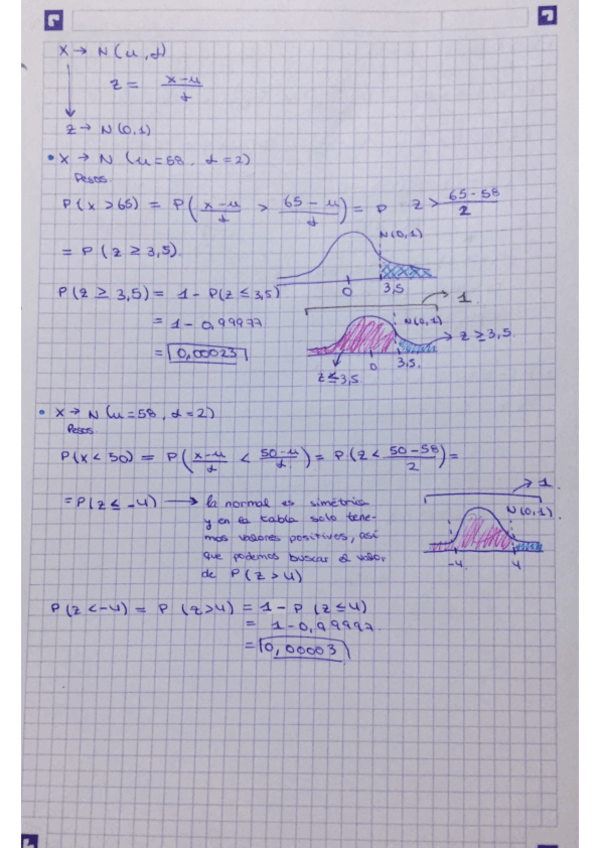 X → N(μ, σ)
z = x-μ / σ
z → N(0,1)
• X → N (μ=58, σ=2)
Pesos.
P(x >65) = P( x-μ / σ > 65-μ / σ ) = P z > 65-58 / 2
N(0,1)
= P (z ≥ 3,5).
0 3,5
P(z ≥ 3,5) = 1 - P(z ≤ 3,5)
1.
N(0,1)
= 1 - 0,99977
z ≥ 3,5.
= 0,00023
0 3,5.
z ≤ 3,5
• X → N (μ=58, σ=2)
Pesos.
P(x < 50) = P( x-μ / σ < 50-μ / σ ) = P(z < 50-58 / 2 ) =
1.
= P(z ≤ -4) → la normal es simétrica
N(0,1).
y en la tabla solo tene-
mos valores positivos, así
que podemos buscar el valor
-4 4
de P(z > 4)
P(z <-4) = P (z>4) = 1 - P (z ≤ 4)
= 1 - 0,99997.
= 0,00003